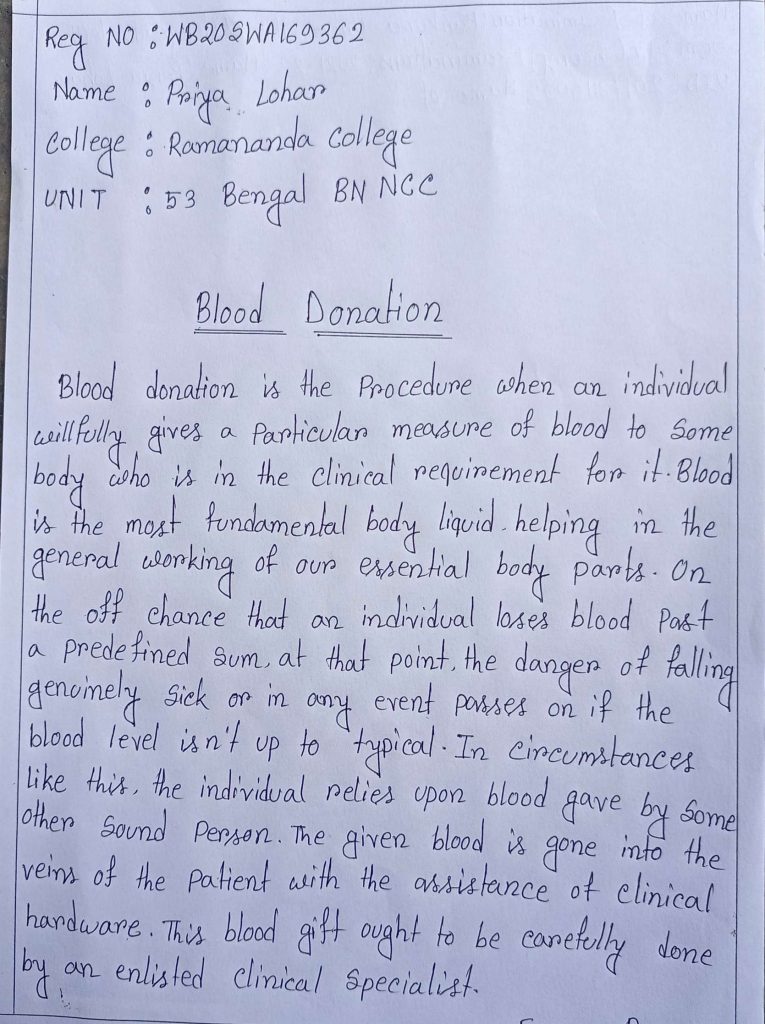 Reg NO : WB20SWA169362
Name : Priya Lohar
College : Ramananda College
UNIT : 53 Bengal BN NCC
Blood Donation
Blood donation is the Procedure when an individual
willfully gives a Particular measure of blood to Some
body who is in the clinical requirement for it. Blood
is the most fundamental body liquid. helping in the
general working of our essential body parts. On
the off chance that an individual loses blood Past
a predefined sum, at that point, the danger of falling
genuinely sick or in any event passes on if the
blood level isn't up to typical. In circumstances
like this, the individual relies upon blood gave by Some
other Sound Person. The given blood is gone into the
veins of the patient with the assistance of clinical
hardware. This blood gift ought to be carefully done
by an enlisted clinical specialist.